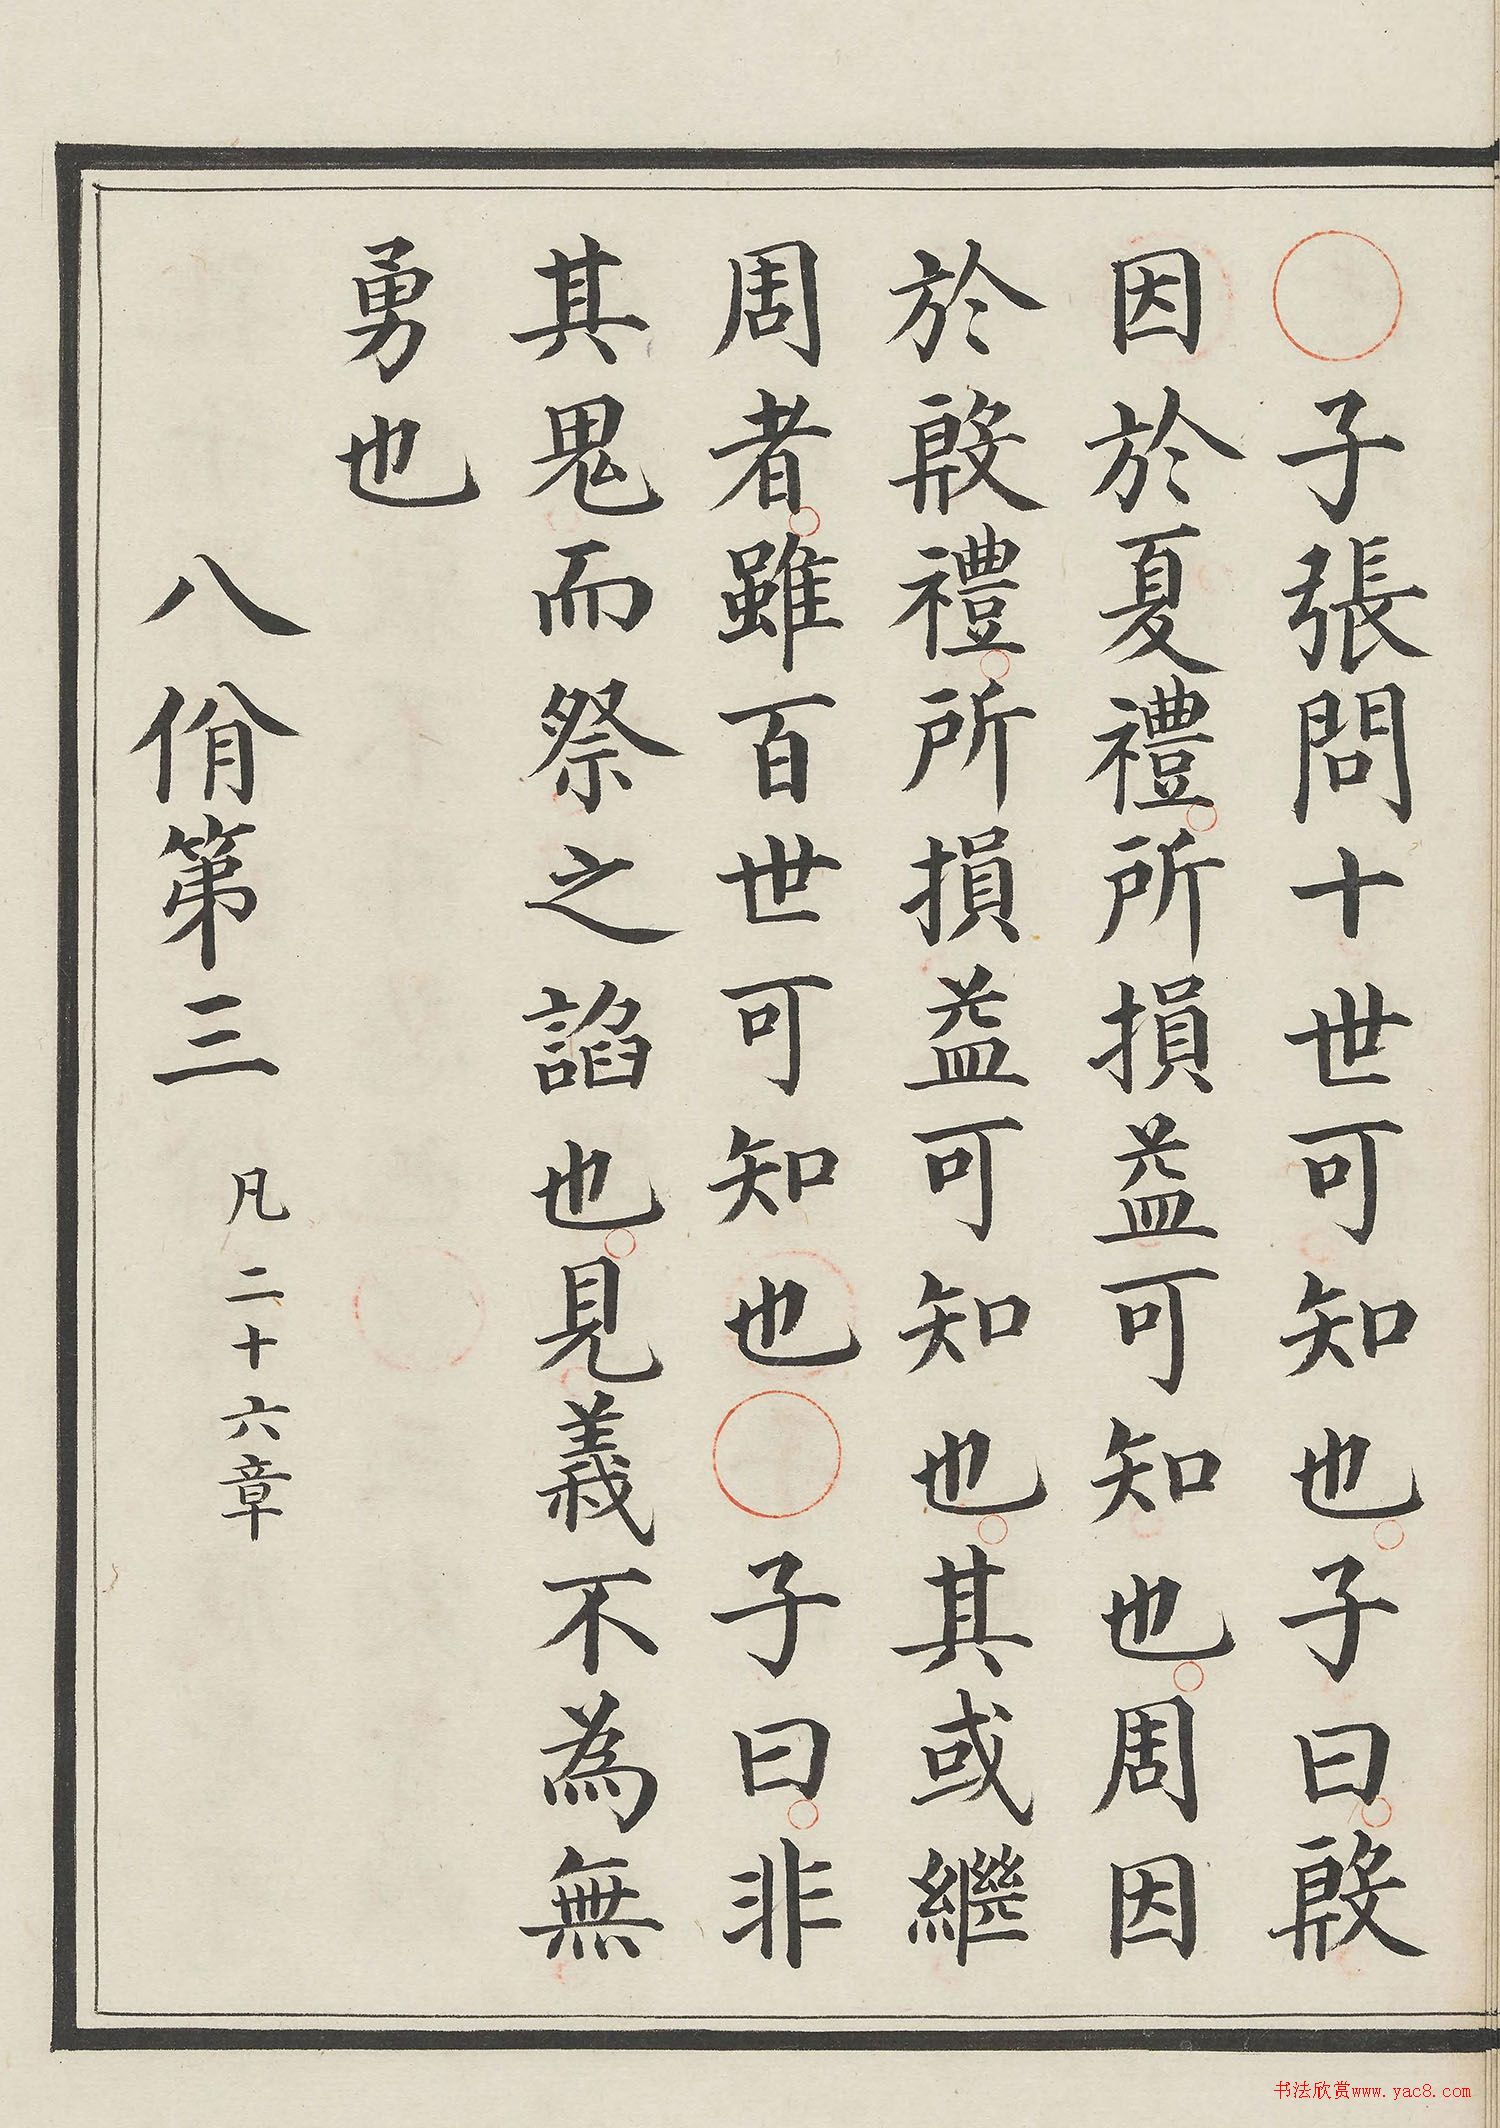 ○子張問十世可知也。子曰。殷
因於夏禮。所損益可知也。周因
於殷禮。所損益可知也。其或繼
周者。雖百世可知也○子曰。非
其鬼而祭之諂也。見義不為無
勇也
八佾第三 凡二十六章
书法欣赏www.yac8.com